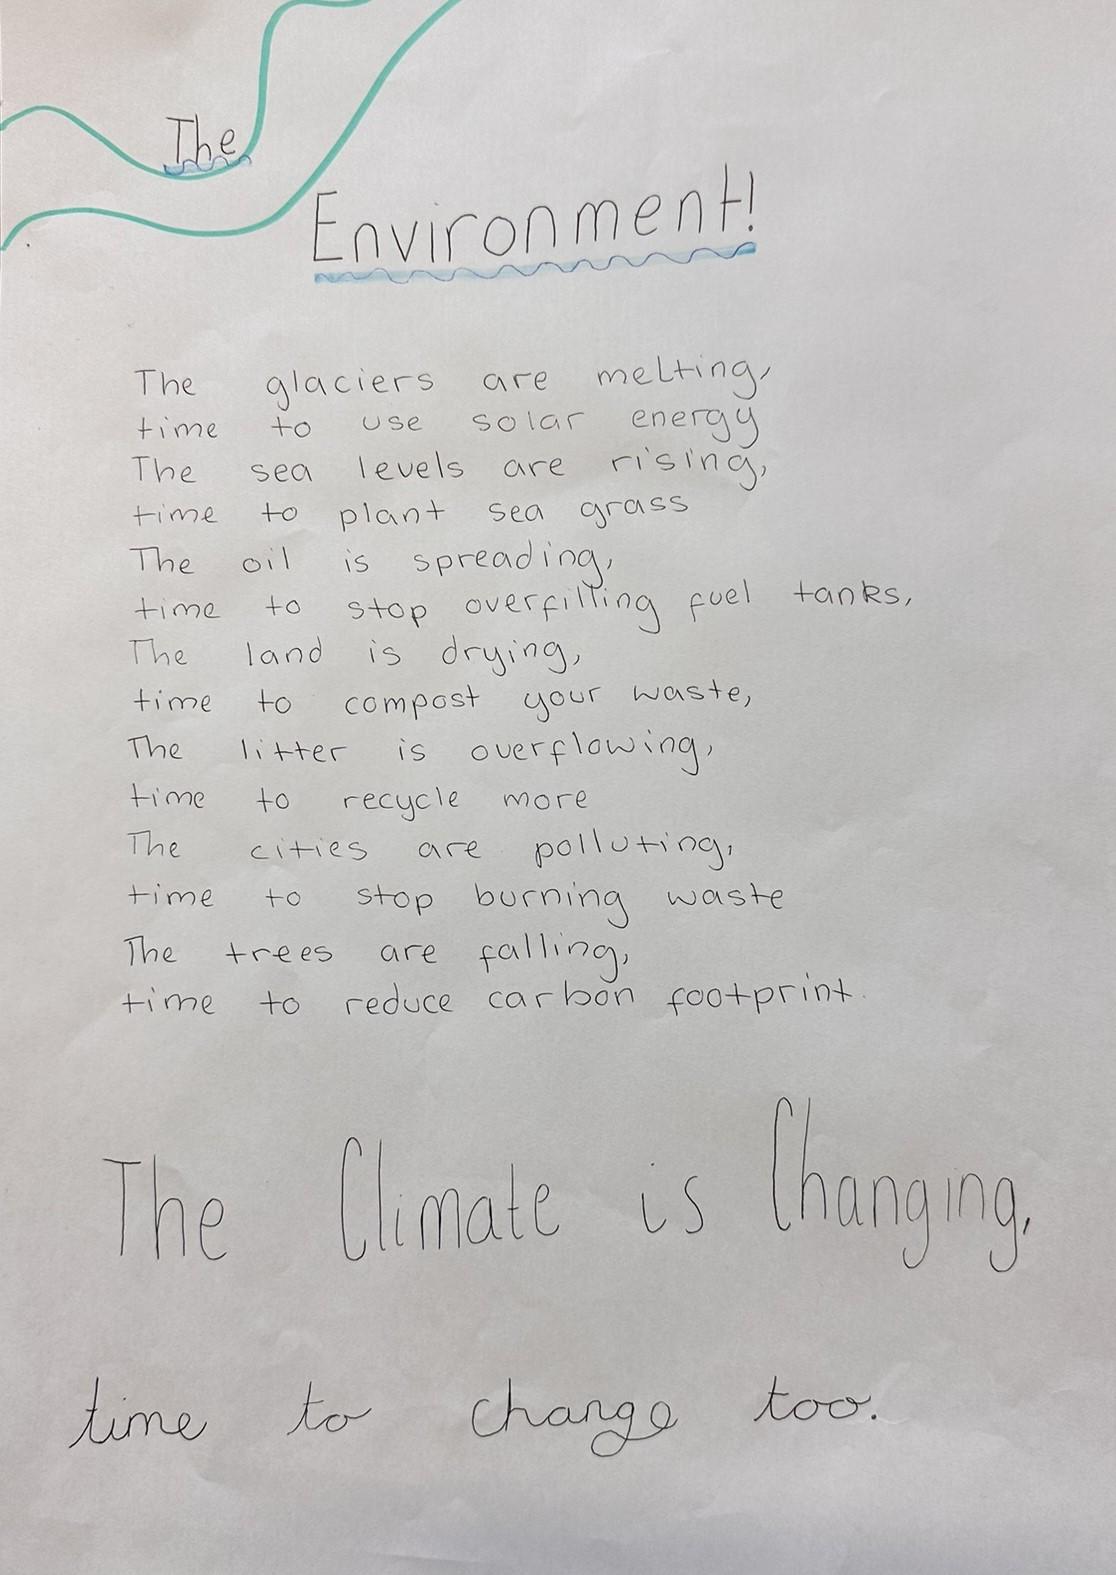 The
Environment!
The glaciers are melting,
time to use solar energy
The sea levels are rising,
time to plant sea grass
The oil is spreading,
time to stop overfilling fuel tanks,
The land is drying,
time to compost your waste,
The litter is overflowing,
time to recycle more
The cities are polluting,
time to stop burning waste
The trees are falling,
time to reduce carbon footprint.
The Climate is Changing,
time to change too.